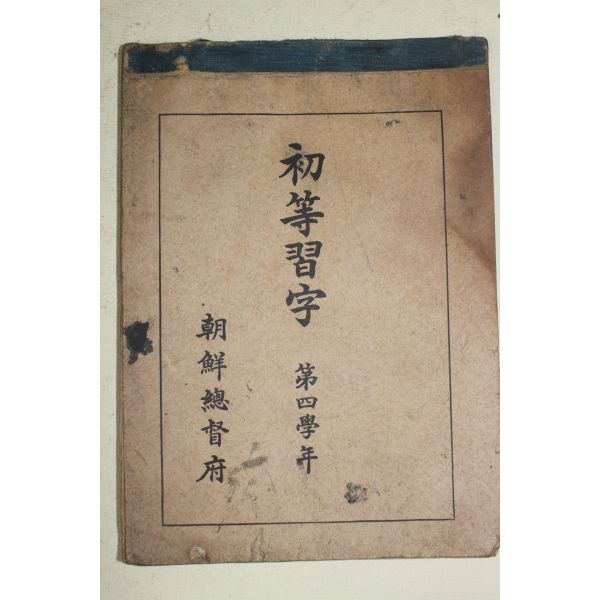 初等習字 第四學年
朝鮮總督府